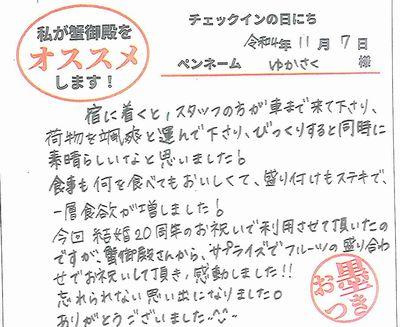 私が蟹御殿を
オススメ
します！
チェックインの日にち
令和4年 11月 7日
ペンネーム ゆかさく 様
宿に着くと、スタッフの方が車まで来て下さり、
荷物を颯爽と運んで下さり、びっくりすると同時に
素晴らしいなと思いました。
食事も何を食べてもおいしくて、盛り付けもステキで、
一層食欲が増しました。
今回 結婚20周年のお祝いで利用させて頂いたの
ですが、蟹御殿さんから、サプライズでフルーツの盛り合わ
せでお祝いして頂き、感動しました!!
忘れられない思い出になりました。
ありがとうございました^^
お墨つき